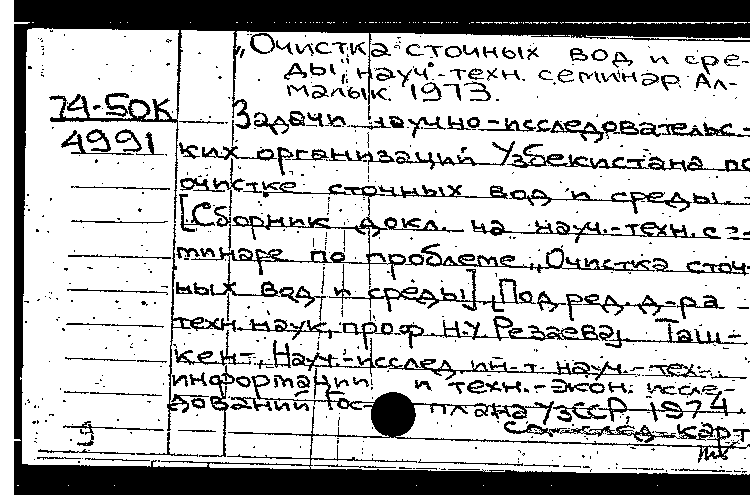 „Очистка сточных вод и сре-
ды", науч.-техн. семинар. Ал-
малык. 1973.
74-50К
4991
Задачи научно-исследовательс-
ких организаций Узбекистана по
очистке сточных вод и среды.
[Сборник докл. на науч.-техн. се-
минаре по проблеме „Очистка сточ-
ных вод и среды]. [Под ред. д-ра
техн. наук, проф. Н.У. Резаева]. Таш-
кент, Науч.-исслед. ин-т науч.-тех.
информации и техн.-экон. иссле-
дований Госплана УзССР, 1974.
См. след. карт
9